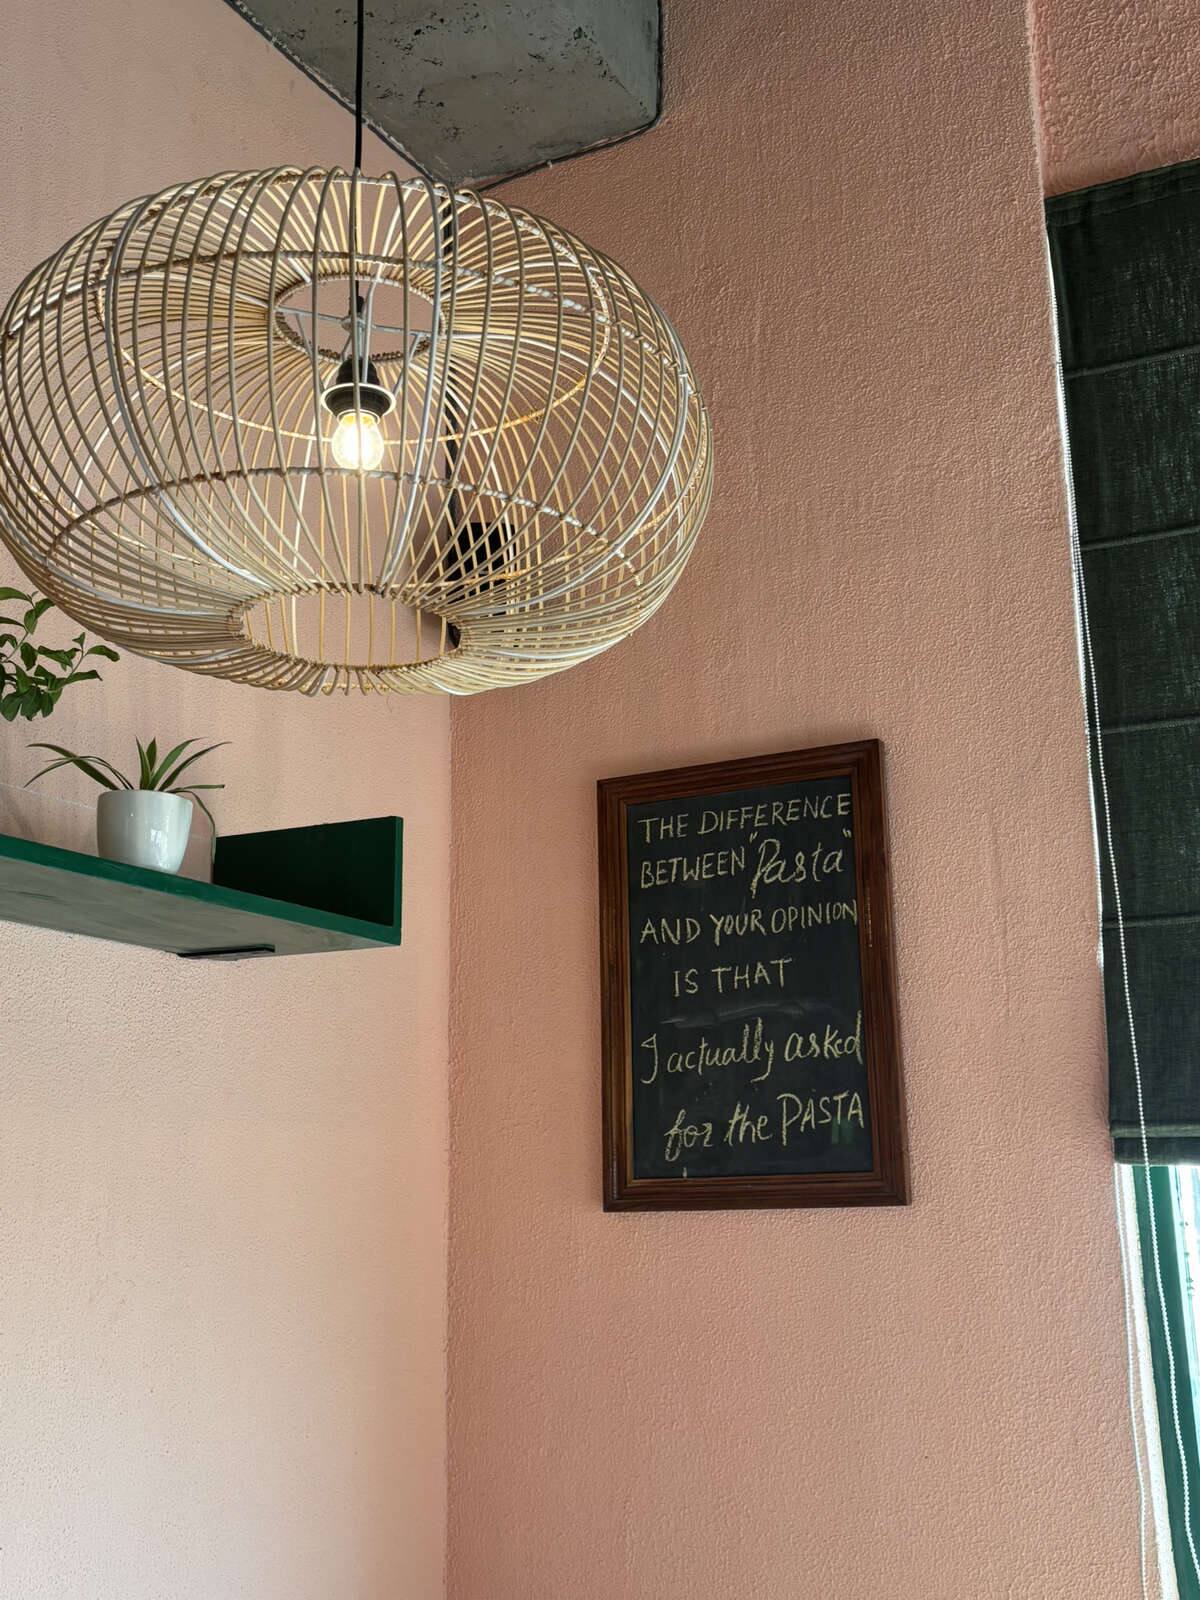 THE DIFFERENCE
BETWEEN "Pasta"
AND YOUR OPINION
IS THAT
I actually asked
for the PASTA